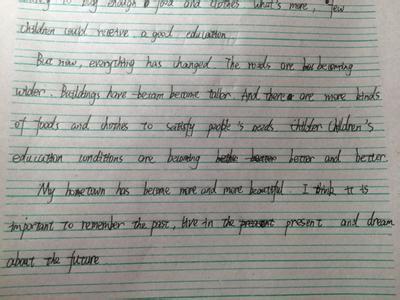 to buy enough food and clothes. What's more, few
children could receive a good education.
But now, everything has changed. The roads are becoming
wider. Buildings have become taller. And there are more kinds
of foods and clothes to satisfy people's needs. Children's
education conditions are becoming better and better.
My hometown has become more and more beautiful. I think it is
important to remember the past, live in the present and dream
about the future